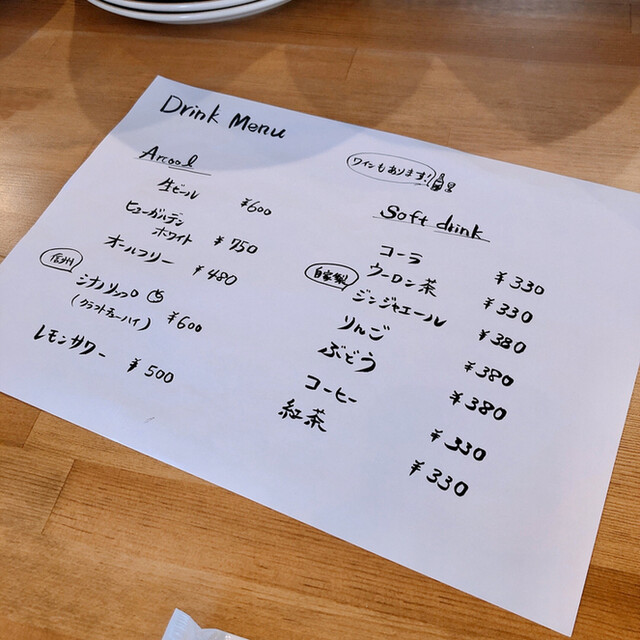 Drink Menu
Arcool
生ビール ¥600
ヒューガルデン
ホワイト ¥750
オールフリー ¥480
信州
シナノリップ ¥600
(クラフトチューハイ)
レモンサワー ¥500
ワインもあります!
Soft drink
コーラ ¥330
ウーロン茶 ¥330
自家製
ジンジャエール ¥380
りんご ¥380
ぶどう ¥380
コーヒー ¥330
紅茶 ¥330